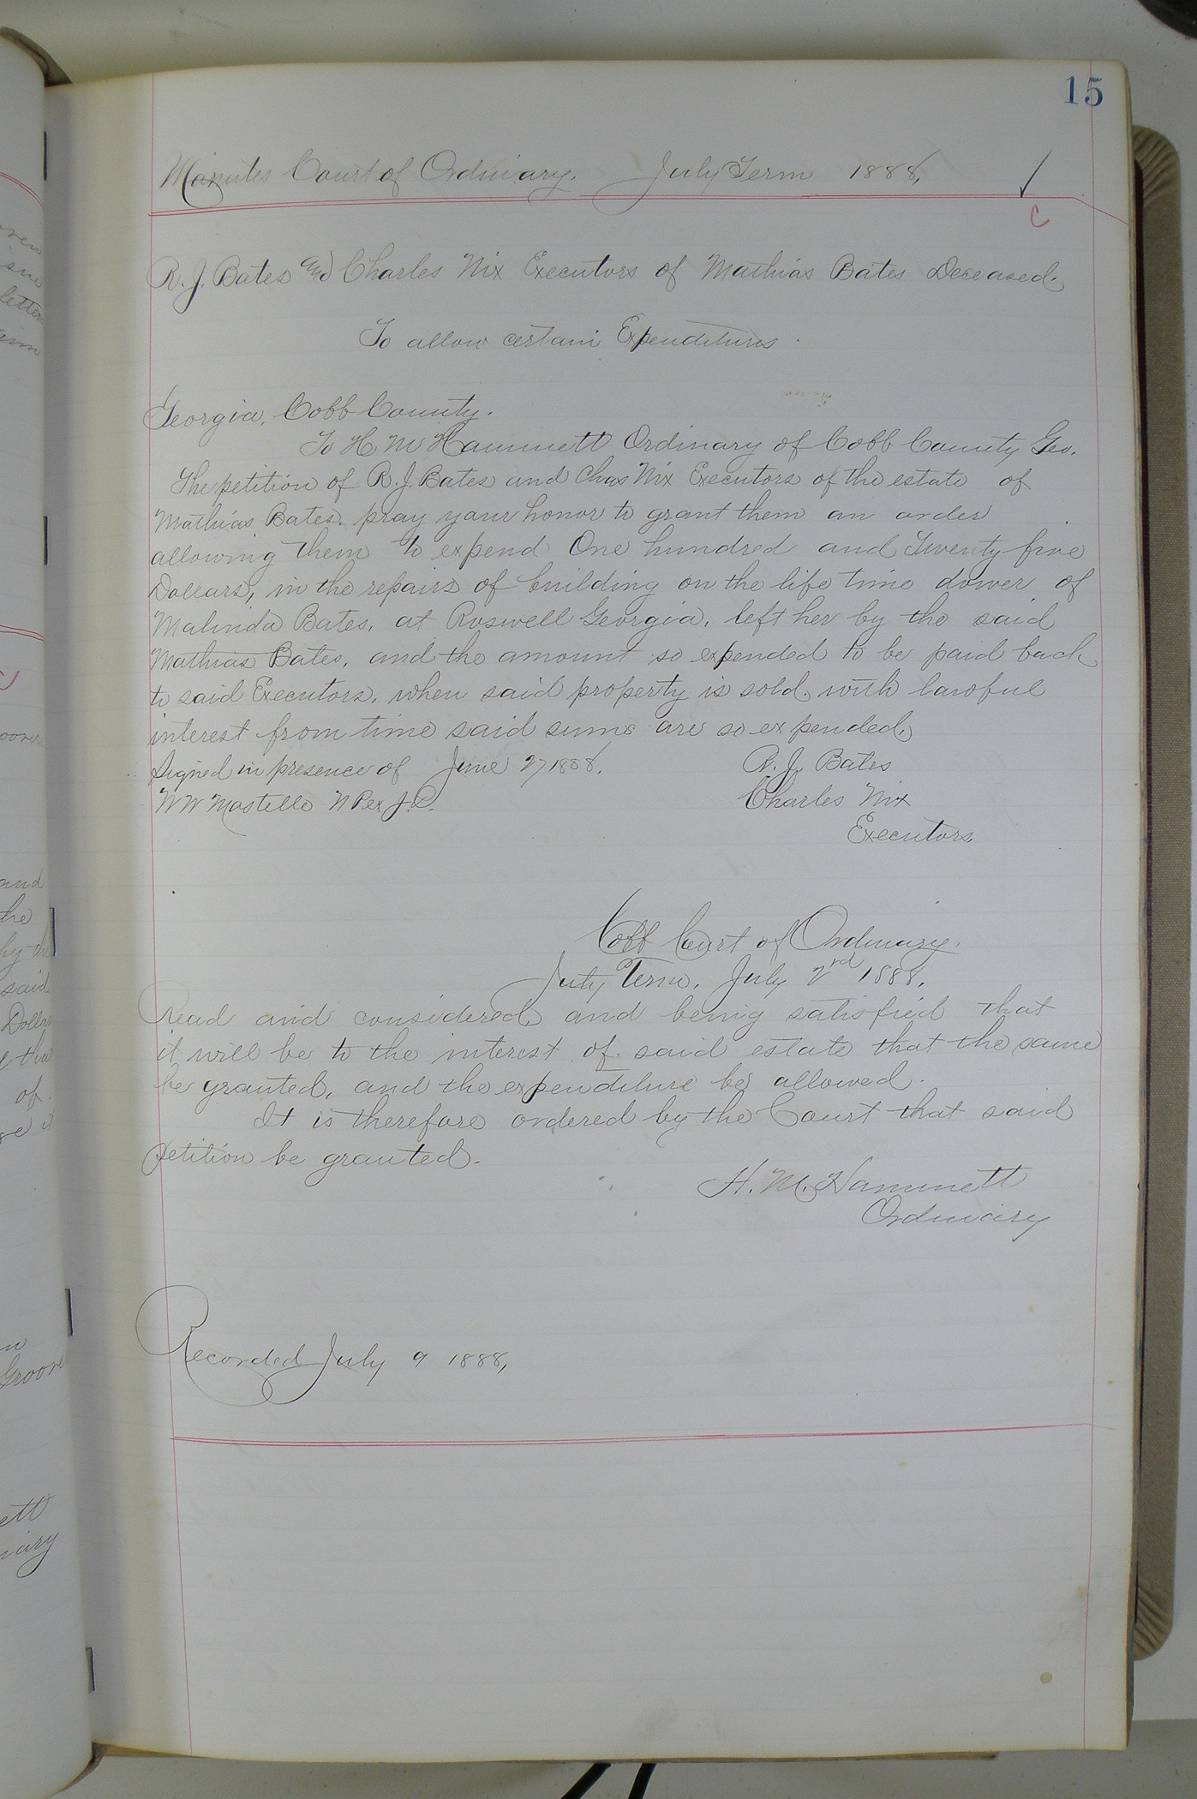 15
Minutes Court of Ordinary. July Term 1888,
C
R. J. Bates and Charles Nix Executors of Mathias Bates Deceased.
To allow certain Expenditures.
Georgia, Cobb County.
To H. M. Hammett Ordinary of Cobb County Geo.
The petition of R. J. Bates and Chas Nix Executors of the estate of
Mathias Bates. pray your honor to grant them an order
allowing them to expend One hundred and Twenty five
Dollars, in the repairs of building on the life time dower of
Malinda Bates, at Roswell Georgia, left her by the said
Mathias Bates, and the amount so expended to be paid back
to said Executors, when said property is sold, with lawful
interest from time said sums are so expended,
Signed in presence of June 27 1888. R. J. Bates
W W Mostello N P ex J. C. Charles Nix
Executors,
Cobb Court of Ordinary.
July Term, July 2nd 1888,
Read and considered and being satisfied that
it will be to the interest of said estate that the same
be granted, and the expenditure be allowed.
It is therefore ordered by the Court that said
petition be granted.
H. M. Hammett
Ordinary
Recorded July 9 1888,
letter
and
the
by the
said
of